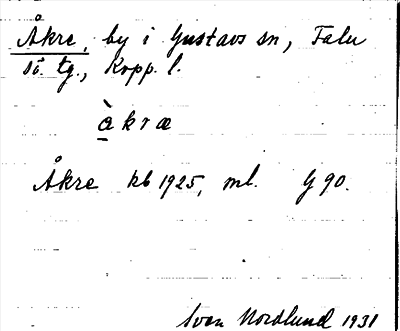 Åkre, by i Gustavs sn, Falu
sö. tg., Kopp. l.
àkræ
Åkre kb 1925, ml. G 90.
Sven Nordlund 1931